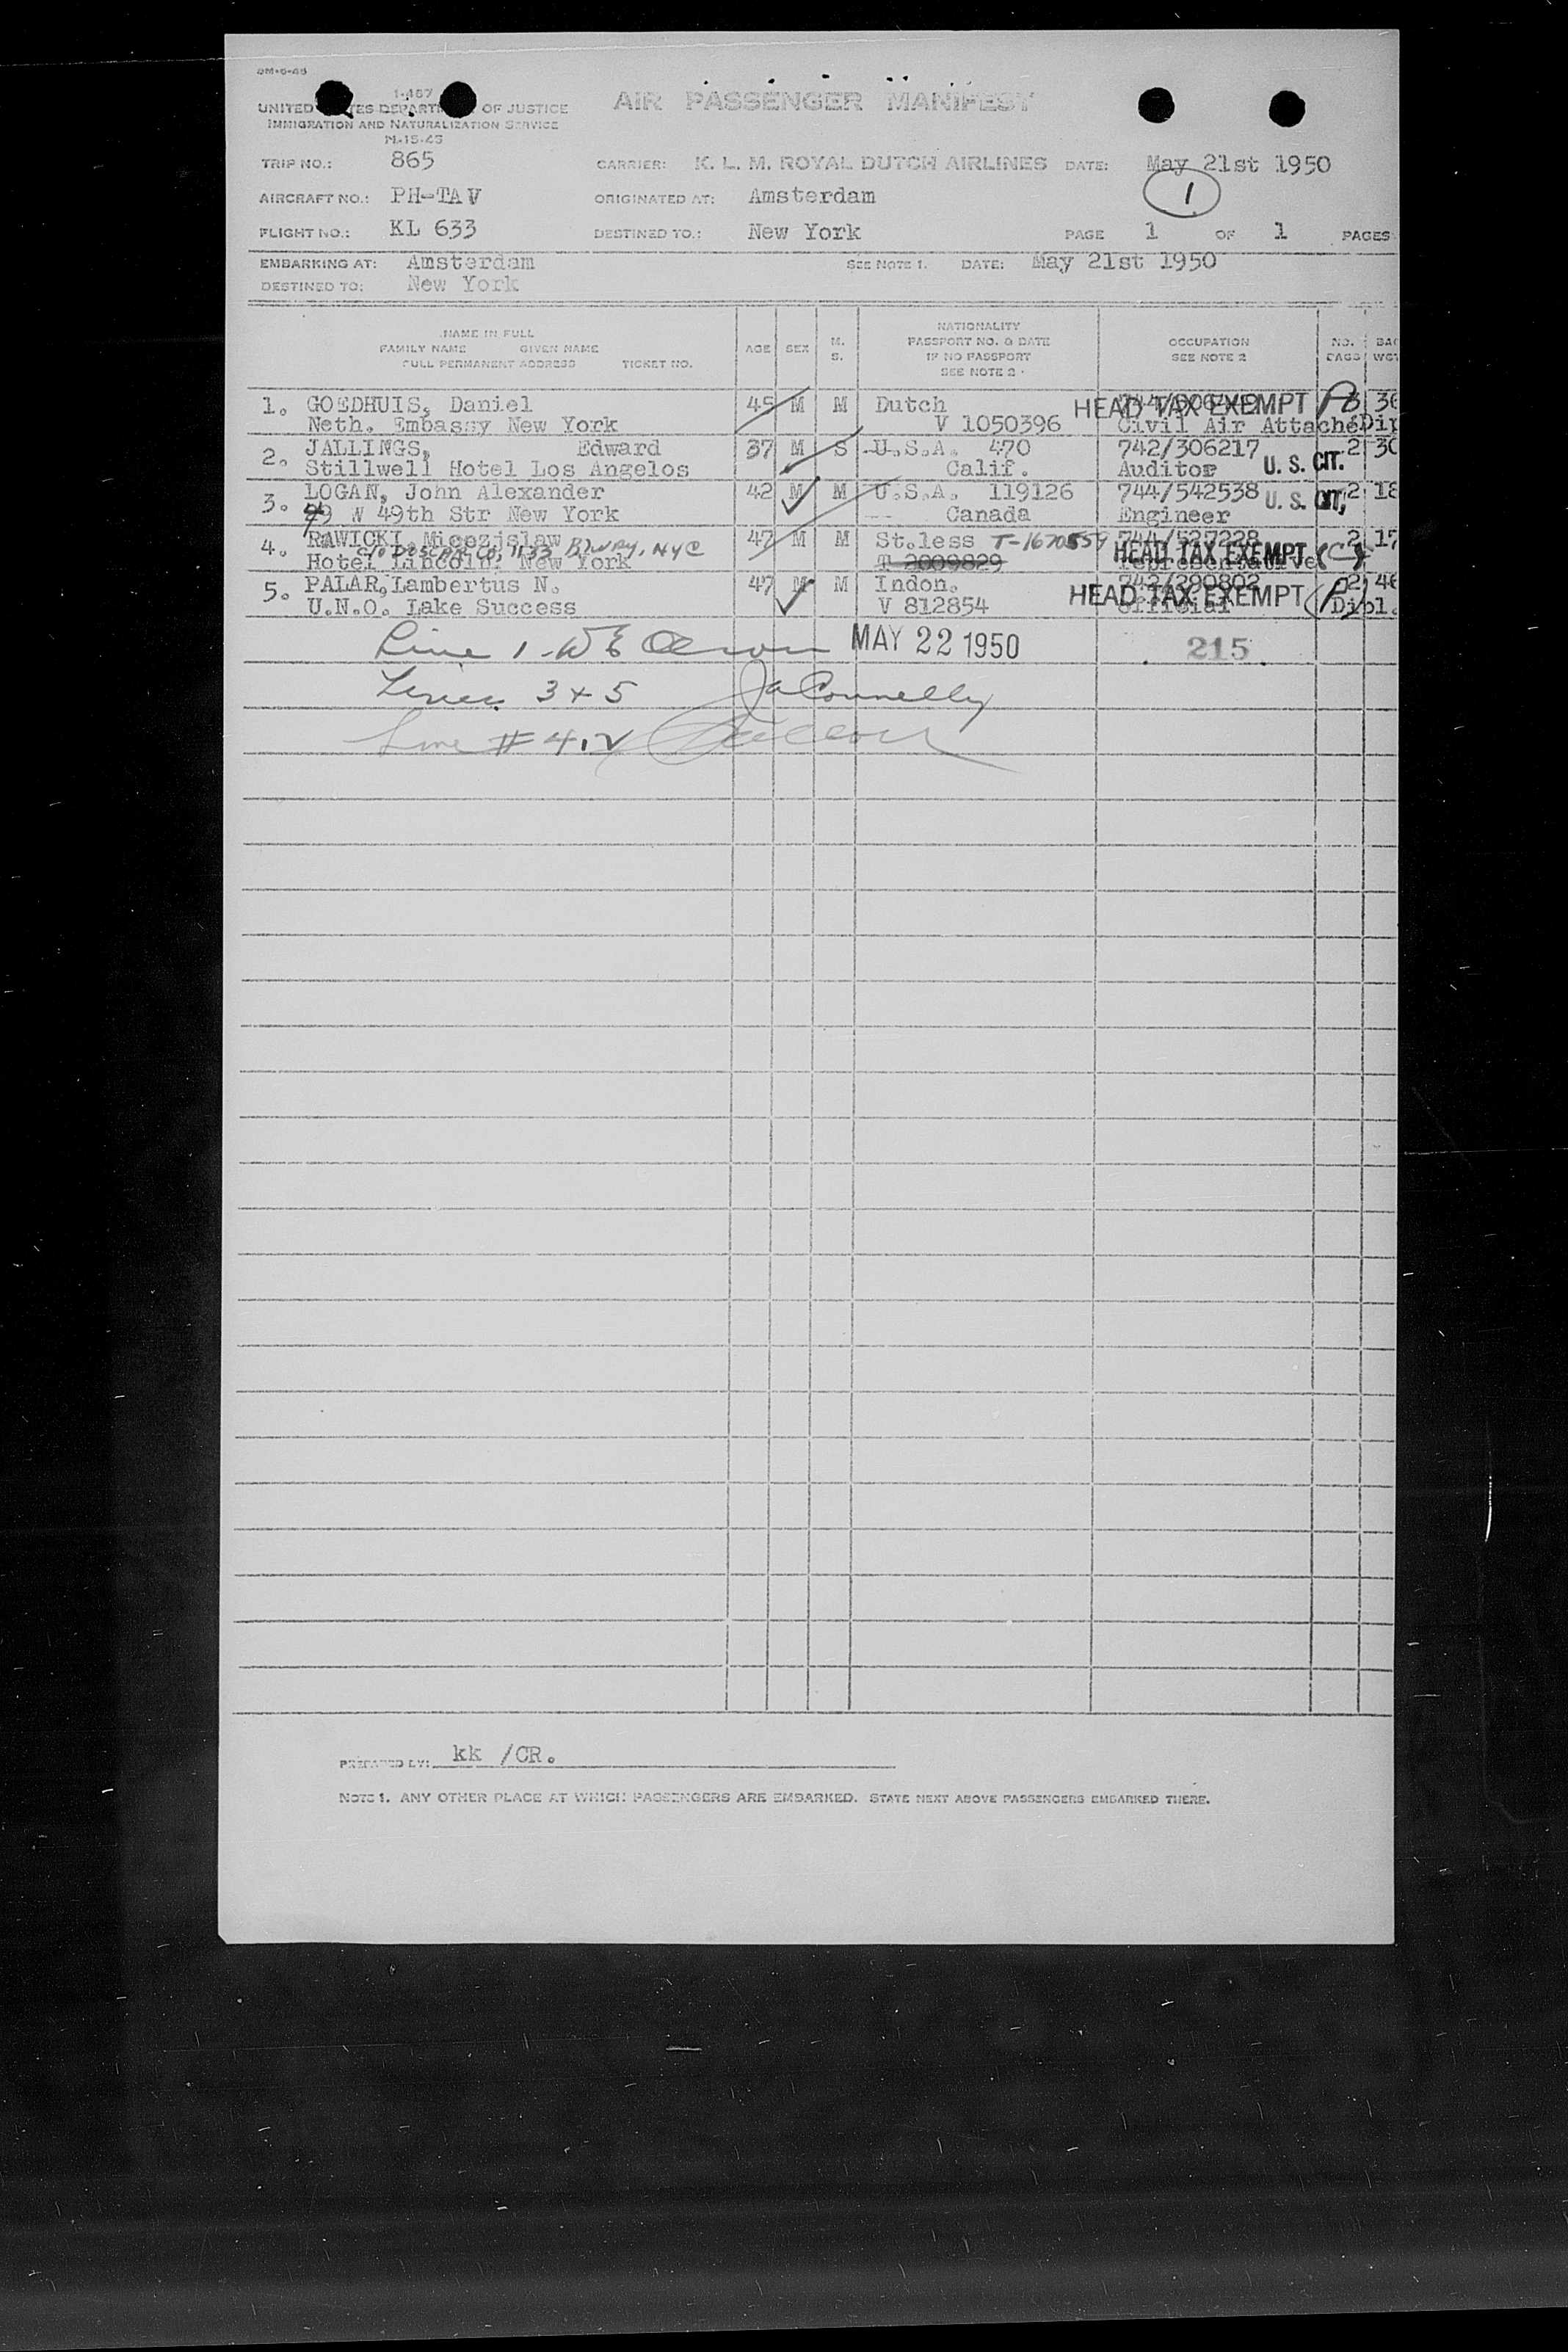 1-467
UNITED STATES DEPARTMENT OF JUSTICE
IMMIGRATION AND NATURALIZATION SERVICE
M-15-43
AIR PASSENGER MANIFEST
TRIP NO.: 865 CARRIER: K. L. M. ROYAL DUTCH AIRLINES DATE: May 21st 1950
1
AIRCRAFT NO.: PH-TAV ORIGINATED AT: Amsterdam
FLIGHT NO.: KL 633 DESTINED TO.: New York PAGE 1 OF 1 PAGES
EMBARKING AT: Amsterdam SEE NOTE 1. DATE: May 21st 1950
DESTINED TO: New York
NAME IN FULL
FAMILY NAME GIVEN NAME
FULL PERMANENT ADDRESS TICKET NO.
AGE SEX M. S.
NATIONALITY
PASSPORT NO. & DATE
IF NO PASSPORT
SEE NOTE 2
OCCUPATION
SEE NOTE 2
NO. BAGS
BAG WGT
1. GOEDHUIS, Daniel 45 M M Dutch HEAD TAX EXEMPT 3 36
Neth. Embassy New York V 1050396 Civil Air Attaché Dip
2. JALLINGS, Edward 37 M S U.S.A. 470 742/306217 2 30
Stillwell Hotel Los Angelos Calif. Auditor U. S. CIT.
3. LOGAN, John Alexander 42 M M U.S.A. 119126 744/542538 U. S. CIT. 2 18
29 W 49th Str New York Canada Engineer
4. RAWICKI, Miecezjslaw 47 M M St.less T-1670559 744/527228 2 17
1133 B'WAY, NYC
Hotel Lincoln. New York T 2009829 HEAD TAX EXEMPT (C)
5. PALAR, Lambertus N. 47 M M Indon. 742/290802 2 46
U.N.O. Lake Success V 812854 HEAD TAX EXEMPT official Dipl.
Line 1 - W E Olson MAY 22 1950 215
Lines 3 + 5 Ja Connelly
Line # 4,2
PREPARED BY: kk /CR.
NOTE 1. ANY OTHER PLACE AT WHICH PASSENGERS ARE EMBARKED. STATE NEXT ABOVE PASSENGERS EMBARKED THERE.